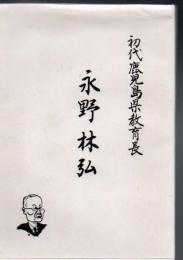 初代鹿児島県教育長
永野林弘